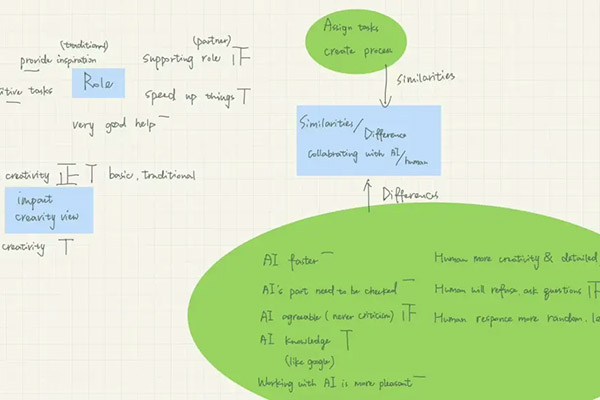 (traditional)
provide inspiration
(partner)
supporting role
itive tasks
Role
speed up things T
very good help 一
creativity 正 T basic, traditional
impact
crearity view
creativity T
Assign tasks
create process
Similarities
Similarities/
Difference
collabrating with AI/human
Differences
AI faster 一
AI's part need to be checked 一
AI agreeable (never critisism)
AI knowledge T
(like google)
Working with AI is more pleasant 一
Human more creativity & detailed
Human will refuse, ask questions
Human response more random,